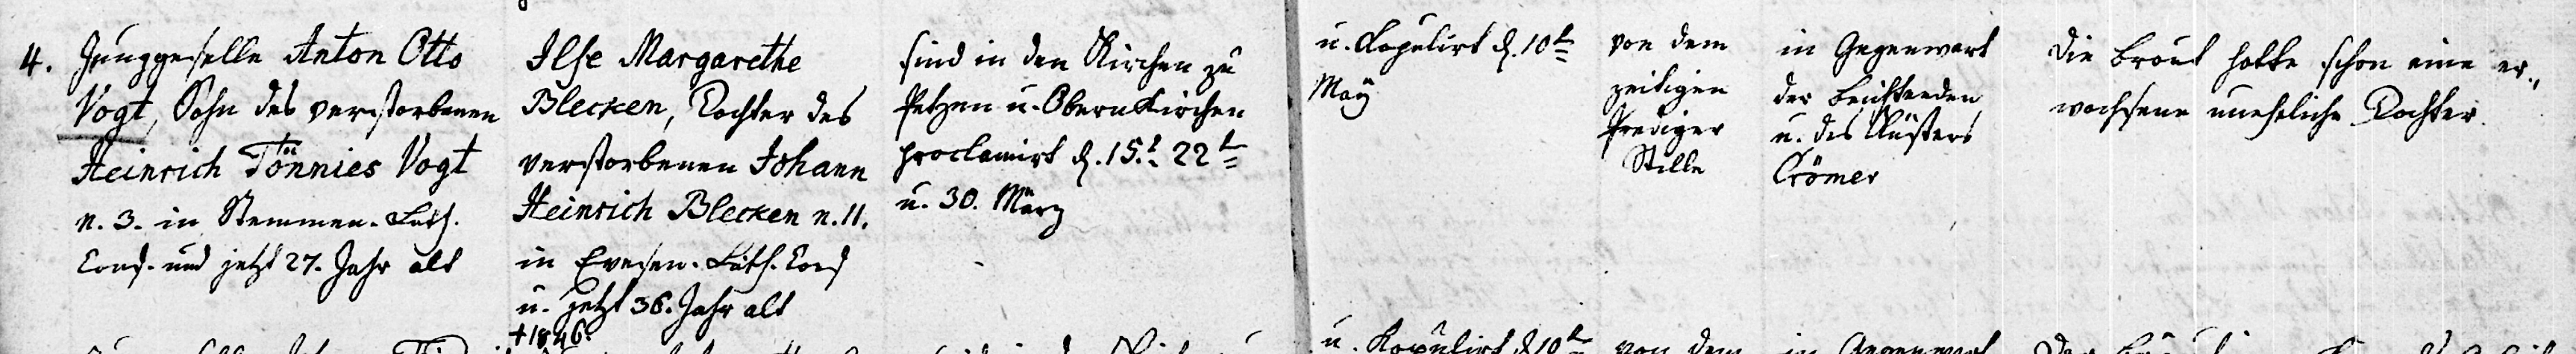 4. Junggeselle Anton Otto
Vogt, Sohn des verstorbenen
Heinrich Tönnies Vogt
n. 3. in Stemmen. Luth.
Conf. und jetzt 27. Jahr alt
Ilse Margarethe
Blecken, Tochter des
verstorbenen Johann
Heinrich Blecken n. 11.
in Evesen. Luth. Conf
u. jetzt 36. Jahr alt
+1846.
sind in den Kirchen zu
Petzen u. Obernkirchen
proclamirt d. 15.t 22t
u. 30. März
u. Kopulirt d. 10t
May
von dem
zeitigen
Prediger
Stille
in Gegenwart
der Beichtenden
u. des Küsters
Crömer
die Braut hatte schon eine er„
wachsene uneheliche Tochter.
u. Kopulirt d 10t
von dem
in Gegenwart